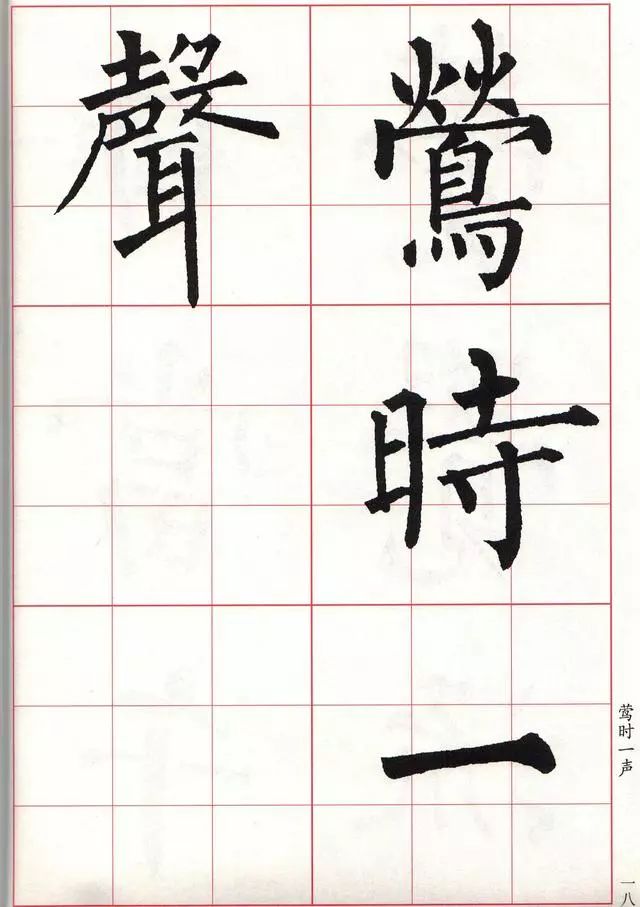 鶯時一
聲
莺时一声
一八